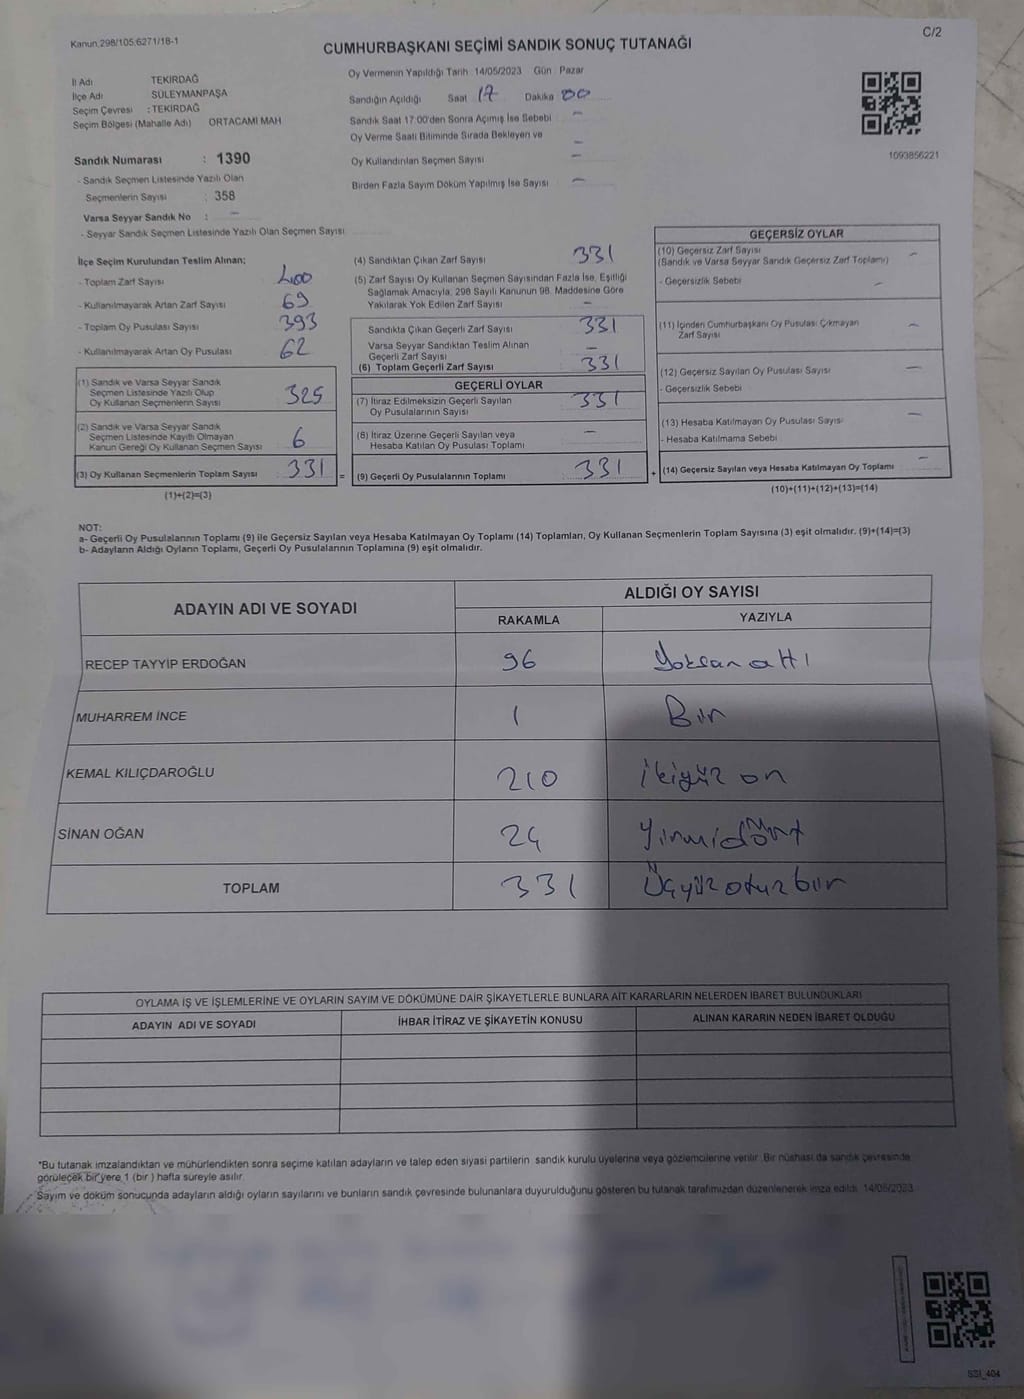 Kanun,298/105,6271/18-1
C/2
CUMHURBAŞKANI SEÇİMİ SANDIK SONUÇ TUTANAĞI
İl Adı TEKİRDAĞ
İlçe Adı SÜLEYMANPAŞA
Seçim Çevresi : TEKİRDAĞ
Seçim Bölgesi (Mahalle Adı) ORTACAMİ MAH
Oy Vermenin Yapıldığı Tarih 14/05/2023 Gün : Pazar
Sandığın Açıldığı Saat 17 Dakika 00
Sandık Saat 17:00'den Sonra Açımış İse Sebebi —
Oy Verme Saati Bitiminde Sırada Bekleyen ve
Oy Kullandırılan Seçmen Sayısı —
Birden Fazla Sayım Döküm Yapılmış İse Sayısı —
1093856221
Sandık Numarası : 1390
- Sandık Seçmen Listesinde Yazılı Olan
Seçmenlerin Sayısı : 358
Varsa Seyyar Sandık No : —
- Seyyar Sandık Seçmen Listesinde Yazılı Olan Seçmen Sayısı
İlçe Seçim Kurulundan Teslim Alınan;
- Toplam Zarf Sayısı 400
- Kullanılmayarak Artan Zarf Sayısı 69
- Toplam Oy Pusulası Sayısı 393
- Kullanılmayarak Artan Oy Pusulası 62
(1) Sandık ve Varsa Seyyar Sandık
Seçmen Listesinde Yazılı Olup
Oy Kullanan Seçmenlerin Sayısı 325
(2) Sandık ve Varsa Seyyar Sandık
Seçmen Listesinde Kayıtlı Olmayan
Kanun Gereği Oy Kullanan Seçmen Sayısı 6
(3) Oy Kullanan Seçmenlerin Toplam Sayısı 331 =
(1)+(2)=(3)
(4) Sandıktan Çıkan Zarf Sayısı 331
(5) Zarf Sayısı Oy Kullanan Seçmen Sayısından Fazla İse, Eşitliği
Sağlamak Amacıyla, 298 Sayılı Kanunun 98. Maddesine Göre
Yakılarak Yok Edilen Zarf Sayısı —
Sandıkta Çıkan Geçerli Zarf Sayısı 331
Varsa Seyyar Sandıktan Teslim Alınan
Geçerli Zarf Sayısı —
(6) Toplam Geçerli Zarf Sayısı 331
GEÇERLİ OYLAR
(7) İtiraz Edilmeksizin Geçerli Sayılan
Oy Pusulalarının Sayısı 331
(8) İtiraz Üzerine Geçerli Sayılan veya
Hesaba Katılan Oy Pusulası Toplamı —
(9) Geçerli Oy Pusulalarının Toplamı 331 +
GEÇERSİZ OYLAR
(10) Geçersiz Zarf Sayısı —
(Sandık ve Varsa Seyyar Sandık Geçersiz Zarf Toplamı)
- Geçersizlik Sebebi —
(11) İçinden Cumhurbaşkanı Oy Pusulası Çıkmayan
Zarf Sayısı —
(12) Geçersiz Sayılan Oy Pusulası Sayısı —
- Geçersizlik Sebebi
(13) Hesaba Katılmayan Oy Pusulası Sayısı —
- Hesaba Katılmama Sebebi
(14) Geçersiz Sayılan veya Hesaba Katılmayan Oy Toplamı —
(10)+(11)+(12)+(13)=(14)
NOT:
a- Geçerli Oy Pusulalarının Toplamı (9) ile Geçersiz Sayılan veya Hesaba Katılmayan Oy Toplamı (14) Toplamları, Oy Kullanan Seçmenlerin Toplam Sayısına (3) eşit olmalıdır. (9)+(14)=(3)
b- Adayların Aldığı Oyların Toplamı, Geçerli Oy Pusulalarının Toplamına (9) eşit olmalıdır.
ADAYIN ADI VE SOYADI
ALDIĞI OY SAYISI
RAKAMLA YAZIYLA
RECEP TAYYİP ERDOĞAN 96 Doksan altı
MUHARREM İNCE 1 Bir
KEMAL KILIÇDAROĞLU 210 ikiyüz on
SİNAN OĞAN 24 Yirmidört
TOPLAM 331 Üçyüz otuz bir
OYLAMA İŞ VE İŞLEMLERİNE VE OYLARIN SAYIM VE DÖKÜMÜNE DAİR ŞİKAYETLERLE BUNLARA AİT KARARLARIN NELERDEN İBARET BULUNDUKLARI
ADAYIN ADI VE SOYADI İHBAR İTİRAZ VE ŞİKAYETİN KONUSU ALINAN KARARIN NEDEN İBARET OLDUĞU
*Bu tutanak imzalandıktan ve mühürlendikten sonra seçime katılan adayların ve talep eden siyasi partilerin sandık kurulu üyelerine veya gözlemcilerine verilir. Bir nüshası da sandık çevresinde
görülecek bir yere 1 (bir ) hafta süreyle asılır.
Sayım ve döküm sonucunda adayların aldığı oyların sayılarını ve bunların sandık çevresinde bulunanlara duyurulduğunu gösteren bu tutanak tarafımızdan düzenlenerek imza edildi. 14/05/2023
SSI_404